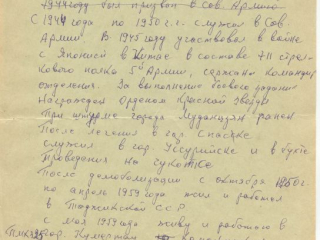 1944 году был призван в Сов. Армию
С 1944 года по 1950 г.г. служил в Сов.
Армии. В 1945 году участвовал в войне
с Японией в Китае в составе 711 стрел-
кового полка 5ой Армии, сержант командир
отделения. За выполнение боевого задания
награжден Орденом Красной Звезды
При штурме города Муданцзян ранен
После лечения в гор. Спасске
служил в гор. Уссурийске и в бухте
Провидения на Чукотке.
После демобилизации с октября 1950 г.
по апрель 1959 года жил и работал
в Таджикской ССР
с мая 1959 года живу и работаю в
гор. Кумертау